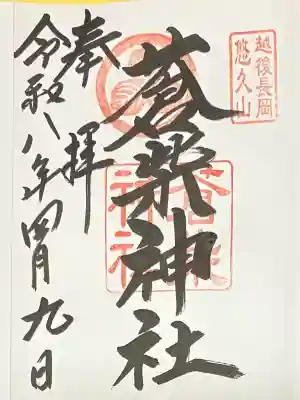 越後長岡
悠久山
奉拝
蒼柴神社
蒼柴
神社
令和八年四月九日